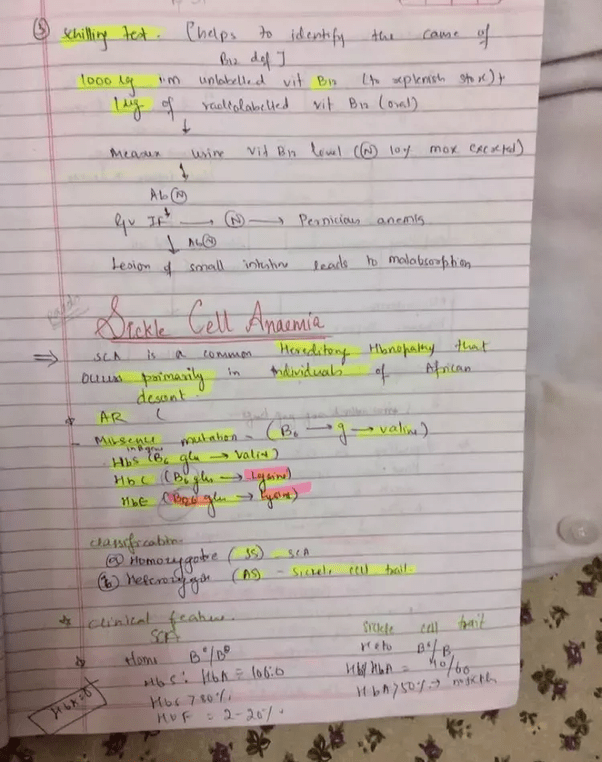 ⑤ Schilling test. [helps to identify the cause of
B12 def]
1000 ug i/m unlabelled vit B12 (to replenish stox) +
1 ug of radiolabelled vit B12 (oral)
↓
Measure urine vit B12 level (Ⓝ 10% max excreted)
↓
Ab Ⓝ
Giv IF → Ⓝ → Pernicious anemia
↓ Ab Ⓝ
Lesion of small intestine leads to malabsorption
Sickle Cell Anaemia
⇒ SCA is a common Hereditary Hbnopathy that
occurs primarily in individuals of African
descent.
AR (
- Missence mutation - (B6 → g → valine)
in B gene
HbS (B6 glu → valine)
HbC (B6 glu → Lysine)
HbE (B26 glu → Lysine)
classification
(a) Homozygote (SS) - SCA
(b) Heterozygo (AS) - Sickle cell trait.
* Clinical feature.
SCA
Sickle cell trait
Homo B°/B°
Hete B°/B
HbS : HbA = 100:0
HbS/HbA = 40/60
HbS > 80%.
HbA > 50% →
HbF = 2-20%.
HbA = 0